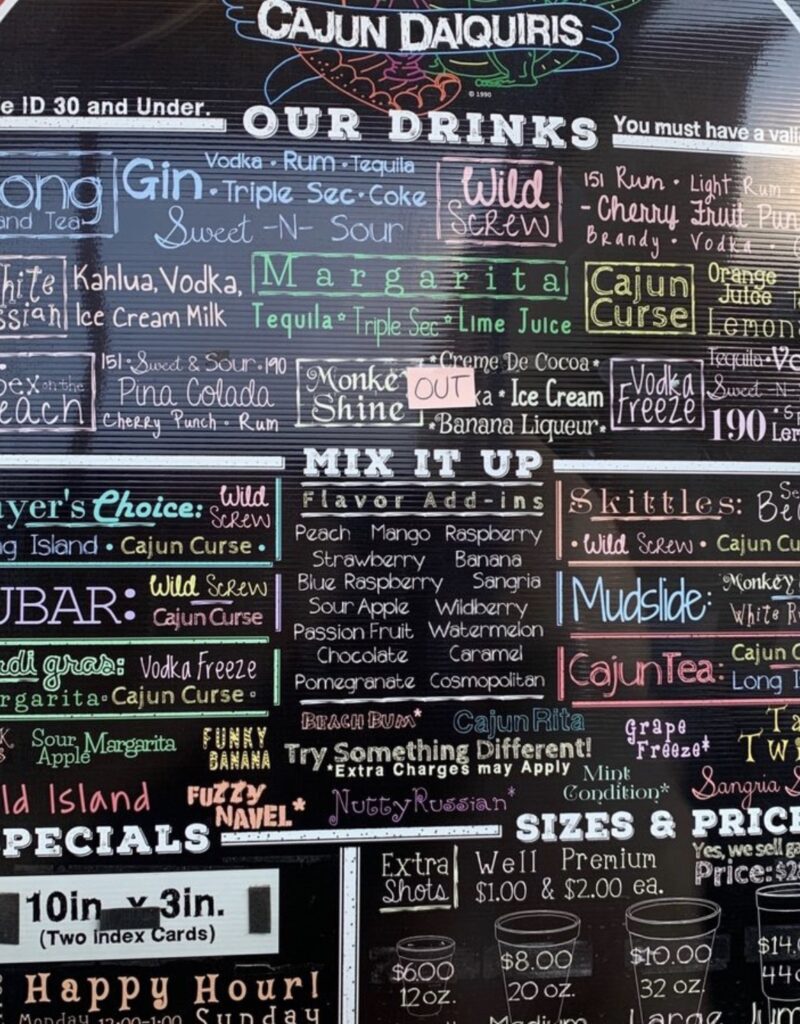 CAJUN DAIQUIRIS
© 1990
ID 30 and Under.
OUR DRINKS
You must have a
and Tea
Gin • Vodka • Rum • Tequila
• Triple Sec • Coke
Sweet -N- Sour
Wild
Screw
151 Rum • Light Rum •
- Cherry Fruit
Brandy • Vodka •
Kahlua, Vodka,
Ice Cream Milk
Margarita
Tequila * Triple Sec * Lime Juice
Cajun
Curse
Orange
Juice
on the
151 • Sweet & Sour • 190
Pina Colada
Cherry Punch • Rum
Shine
OUT
*Creme De Cocoa*
* Ice Cream
*Banana Liqueur*
Vodka
Freeze
Tequila •
Sweet -N-
190
MIX IT UP
Choice: Wild
Screw
Island • Cajun Curse •
Wild Screw
Cajun Curse
gras: Vodka Freeze
Cajun Curse •
Flavor Add-ins
Peach Mango Raspberry
Strawberry Banana
Blue Raspberry Sangria
Sour Apple Wildberry
Passion Fruit Watermelon
Chocolate Caramel
Pomegranate Cosmopolitan
Skittles:
• Wild Screw • Cajun
Mudslide: Monkey
White
Cajun Tea: Cajun
Long
Sour
Apple Margarita
Funky
Banana
Beach Bum*
Cajun Rita
Grape
Freeze*
Try Something Different!
*Extra Charges may Apply
Mint
Condition*
Sangria
Island
Fuzzy
Navel*
Nutty Russian*
SIZES &
Yes, we sell
Price:
10in x 3in.
(Two Index Cards)
Happy Hour!
Monday Sunday
Extra
Shots
Well Premium
$1.00 & $2.00 ea.
$6.00
12 oz.
$8.00
20 oz.
Medium
$10.00
32 oz.
Large